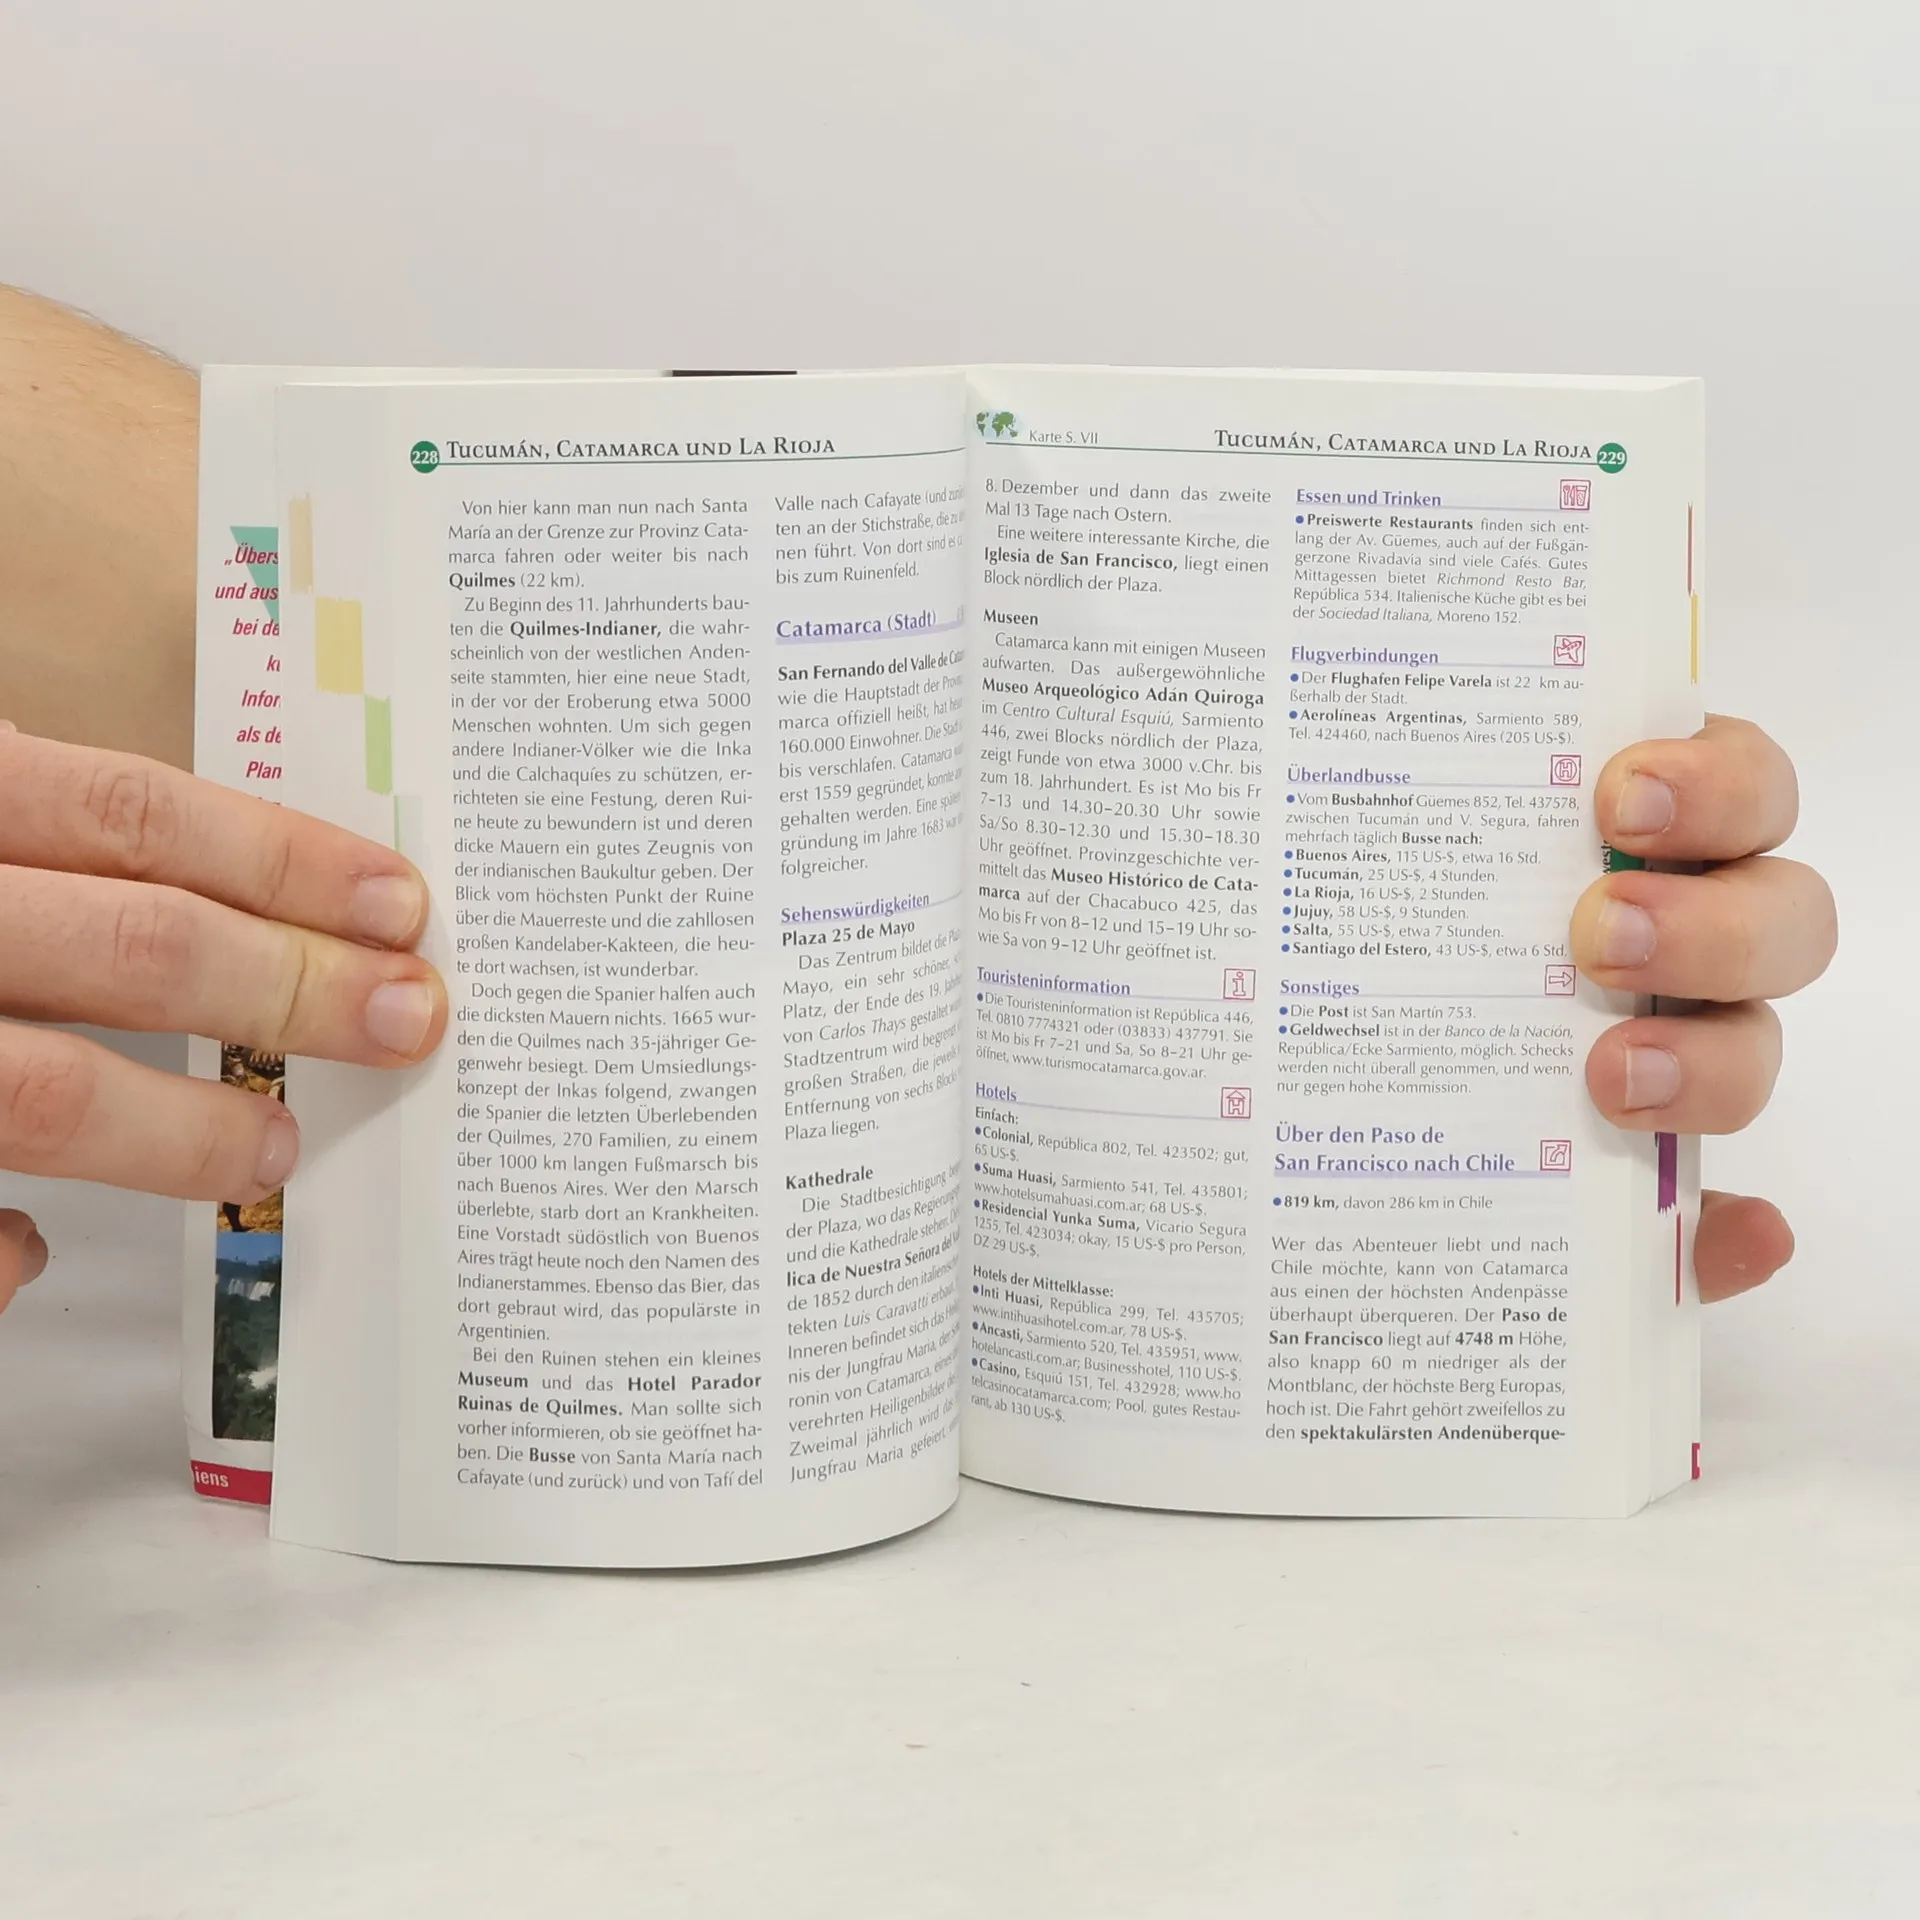 „Übers
und aus
bei de
Infor
als de
Plan
iens
228 TUCUMÁN, CATAMARCA UND LA RIOJA
Von hier kann man nun nach Santa
María an der Grenze zur Provinz Cata-
marca fahren oder weiter bis nach
Quilmes (22 km).
Zu Beginn des 11. Jahrhunderts bau-
ten die Quilmes-Indianer, die wahr-
scheinlich von der westlichen Anden-
seite stammten, hier eine neue Stadt,
in der vor der Eroberung etwa 5000
Menschen wohnten. Um sich gegen
andere Indianer-Völker wie die Inka
und die Calchaquíes zu schützen, er-
richteten sie eine Festung, deren Rui-
ne heute zu bewundern ist und deren
dicke Mauern ein gutes Zeugnis von
der indianischen Baukultur geben. Der
Blick vom höchsten Punkt der Ruine
über die Mauerreste und die zahllosen
großen Kandelaber-Kakteen, die heu-
te dort wachsen, ist wunderbar.
Doch gegen die Spanier halfen auch
die dicksten Mauern nichts. 1665 wur-
den die Quilmes nach 35-jähriger Ge-
genwehr besiegt. Dem Umsiedlungs-
konzept der Inkas folgend, zwangen
die Spanier die letzten Überlebenden
der Quilmes, 270 Familien, zu einem
über 1000 km langen Fußmarsch bis
nach Buenos Aires. Wer den Marsch
überlebte, starb dort an Krankheiten.
Eine Vorstadt südöstlich von Buenos
Aires trägt heute noch den Namen des
Indianerstammes. Ebenso das Bier, das
dort gebraut wird, das populärste in
Argentinien.
Bei den Ruinen stehen ein kleines
Museum und das Hotel Parador
Ruinas de Quilmes. Man sollte sich
vorher informieren, ob sie geöffnet ha-
ben. Die Busse von Santa María nach
Cafayate (und zurück) und von Tafí del
Valle nach Cafayate (und
ten an der Stichstraße, die
nen führt. Von dort sind es
bis zum Ruinenfeld.
Catamarca (Stadt)
San Fernando del Valle de
wie die Hauptstadt der
marca offiziell heißt, hat
160.000 Einwohner. Die Stadt
bis verschlafen. Catamarca
erst 1559 gegründet, konnte
gehalten werden. Eine
gründung im Jahre 1683
folgreicher.
Sehenswürdigkeiten
Plaza 25 de Mayo
Das Zentrum bildet die
Mayo, ein sehr schöner,
Platz, der Ende des 19.
von Carlos Thays gestaltet
Stadtzentrum wird begrenzt
großen Straßen, die jeweils
Entfernung von sechs Blocks
Plaza liegen.
Kathedrale
Die Stadtbesichtigung
der Plaza, wo das
und die Kathedrale stehen.
lica de Nuestra Señora del
de 1852 durch den
tekten Luis Caravatti erbaut.
Inneren befindet sich das
nis der Jungfrau Maria, der
ronin von Catamarca, eines
verehrten Heiligenbilder
Zweimal jährlich wird das
Jungfrau Maria gefeiert,
Karte S. VII
TUCUMÁN, CATAMARCA UND LA RIOJA 229
8. Dezember und dann das zweite
Mal 13 Tage nach Ostern.
Eine weitere interessante Kirche, die
Iglesia de San Francisco, liegt einen
Block nördlich der Plaza.
Museen
Catamarca kann mit einigen Museen
aufwarten. Das außergewöhnliche
Museo Arqueológico Adán Quiroga
im Centro Cultural Esquiú, Sarmiento
446, zwei Blocks nördlich der Plaza,
zeigt Funde von etwa 3000 v.Chr. bis
zum 18. Jahrhundert. Es ist Mo bis Fr
7–13 und 14.30–20.30 Uhr sowie
Sa/So 8.30–12.30 und 15.30–18.30
Uhr geöffnet. Provinzgeschichte ver-
mittelt das Museo Histórico de Cata-
marca auf der Chacabuco 425, das
Mo bis Fr von 8–12 und 15–19 Uhr so-
wie Sa von 9–12 Uhr geöffnet ist.
Touristeninformation
●Die Touristeninformation ist República 446,
Tel. 0810 7774321 oder (03833) 437791. Sie
ist Mo bis Fr 7–21 und Sa, So 8–21 Uhr ge-
öffnet, www.turismocatamarca.gov.ar.
Hotels
Einfach:
●Colonial, República 802, Tel. 423502; gut,
65 US-$.
●Suma Huasi, Sarmiento 541, Tel. 435801;
www.hotelsumahuasi.com.ar; 68 US-$.
●Residencial Yunka Suma, Vicario Segura
1255, Tel. 423034; okay, 15 US-$ pro Person,
DZ 29 US-$.
Hotels der Mittelklasse:
●Inti Huasi, República 299, Tel. 435705;
www.intihuasihotel.com.ar, 78 US-$.
●Ancasti, Sarmiento 520, Tel. 435951, www.
hotelancasti.com.ar; Businesshotel, 110 US-$.
●Casino, Esquiú 151, Tel. 432928; www.ho
telcasinocatamarca.com; Pool, gutes Restau-
rant, ab 130 US-$.
Essen und Trinken
●Preiswerte Restaurants finden sich ent-
lang der Av. Güemes, auch auf der Fußgän-
gerzone Rivadavia sind viele Cafés. Gutes
Mittagessen bietet Richmond Resto Bar,
República 534. Italienische Küche gibt es bei
der Sociedad Italiana, Moreno 152.
Flugverbindungen
●Der Flughafen Felipe Varela ist 22 km au-
ßerhalb der Stadt.
●Aerolíneas Argentinas, Sarmiento 589,
Tel. 424460, nach Buenos Aires (205 US-$).
Überlandbusse
●Vom Busbahnhof Güemes 852, Tel. 437578,
zwischen Tucumán und V. Segura, fahren
mehrfach täglich Busse nach:
●Buenos Aires, 115 US-$, etwa 16 Std.
●Tucumán, 25 US-$, 4 Stunden.
●La Rioja, 16 US-$, 2 Stunden.
●Jujuy, 58 US-$, 9 Stunden.
●Salta, 55 US-$, etwa 7 Stunden.
●Santiago del Estero, 43 US-$, etwa 6 Std.
Sonstiges
●Die Post ist San Martín 753.
●Geldwechsel ist in der Banco de la Nación,
República/Ecke Sarmiento, möglich. Schecks
werden nicht überall genommen, und wenn,
nur gegen hohe Kommission.
Über den Paso de
San Francisco nach Chile
●819 km, davon 286 km in Chile
Wer das Abenteuer liebt und nach
Chile möchte, kann von Catamarca
aus einen der höchsten Andenpässe
überhaupt überqueren. Der Paso de
San Francisco liegt auf 4748 m Höhe,
also knapp 60 m niedriger als der
Montblanc, der höchste Berg Europas,
hoch ist. Die Fahrt gehört zweifellos zu
den spektakulärsten Andenüberque-